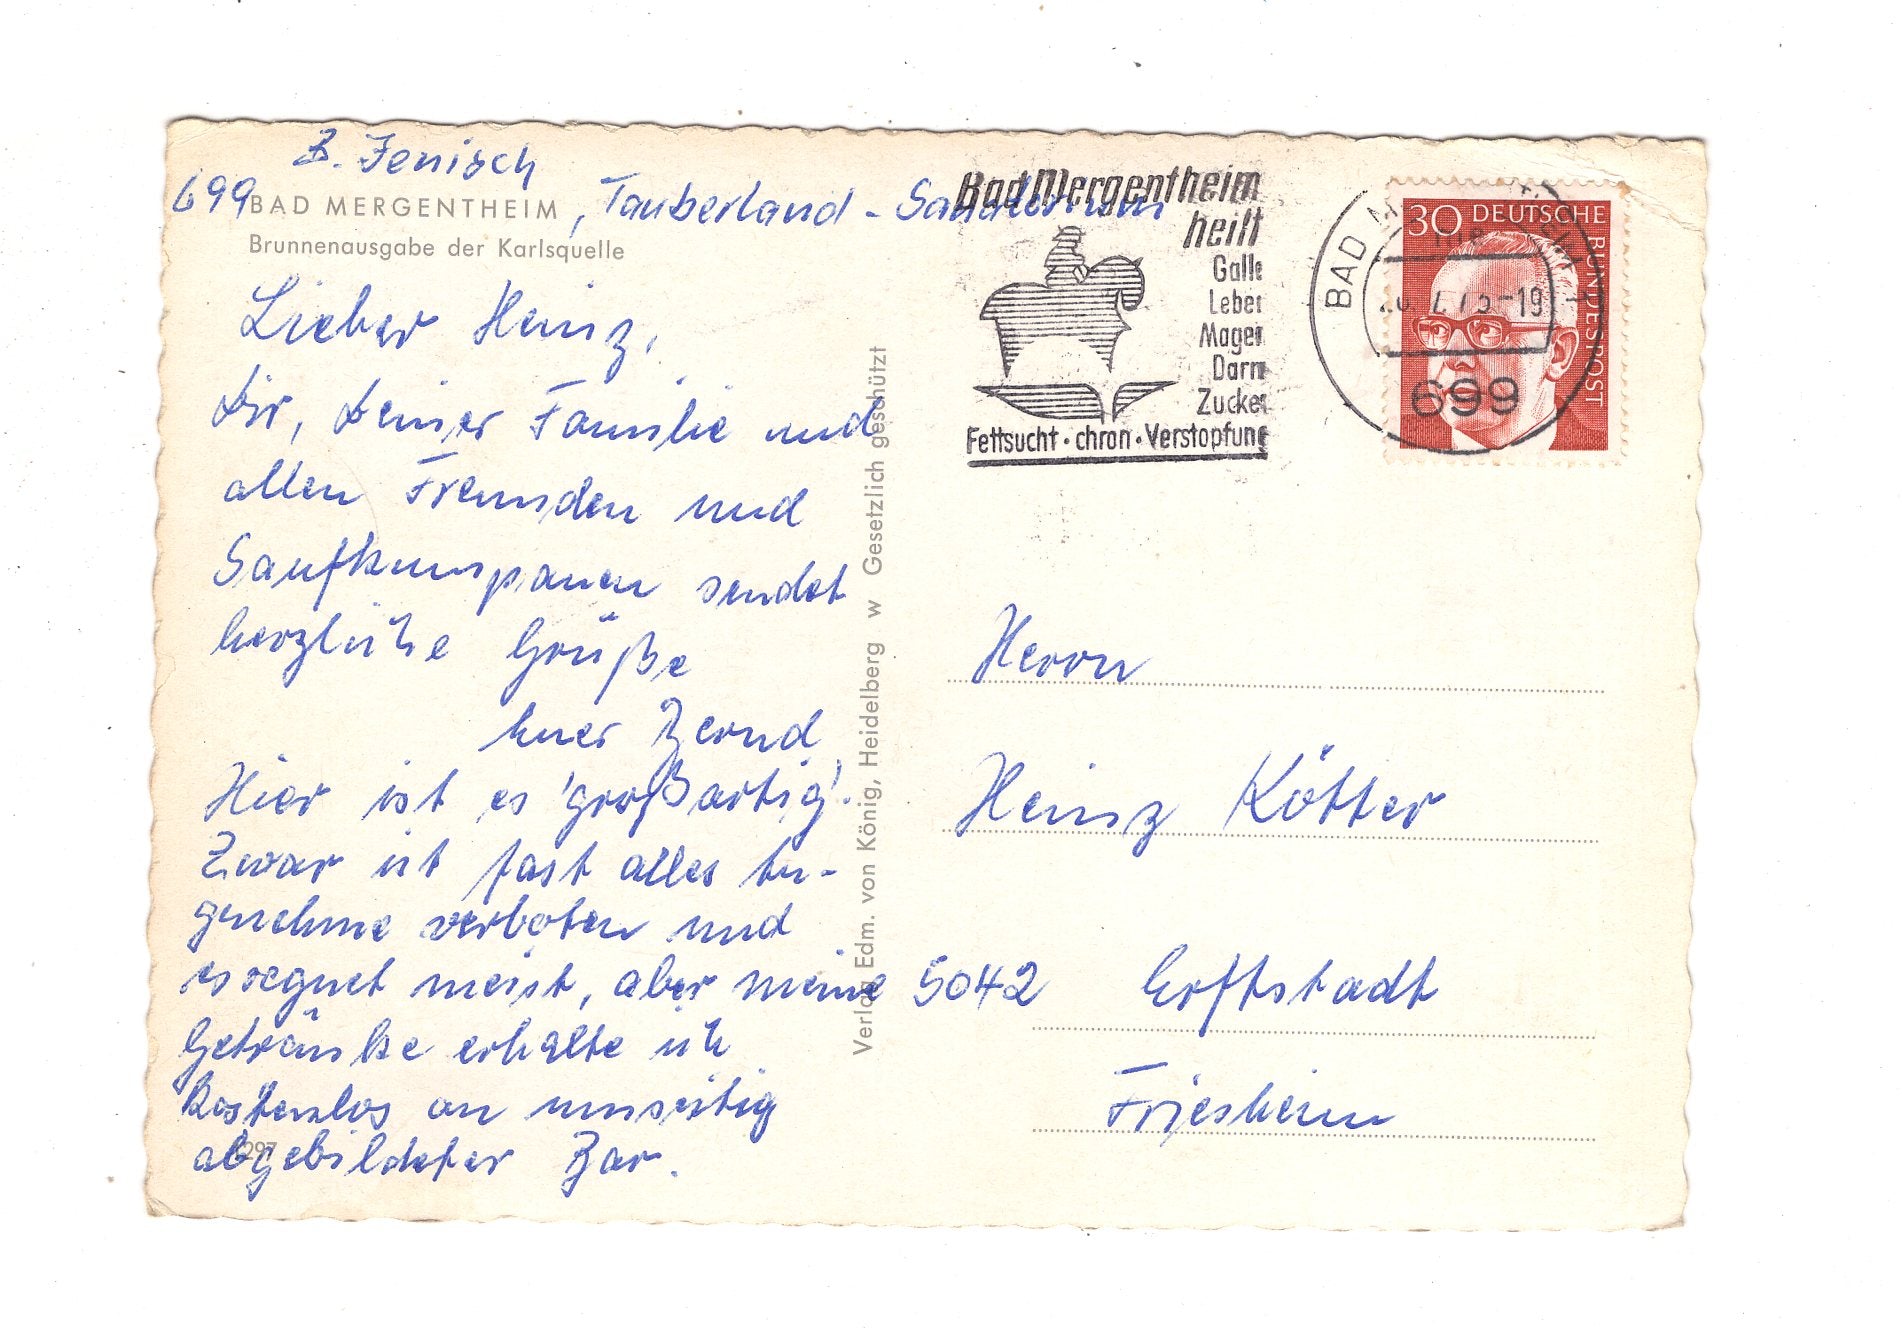 B. Jenisch
699 BAD MERGENTHEIM, Tauberland-Sanatorium
Brunnenausgabe der Karlsquelle
Lieber Heinz,
Dir, Deiner Familie und
allen Freunden und
Saufkumpanen sendet
herzliche Grüße
Euer Bernd
Hier ist es 'großartig'.
Zwar ist fast alles An-
genehme verboten und
es regnet meist, aber meine
Getränke erhalte ich
kostenlos an umseitig
abgebildeter Bar.
297
Verlag Edm. von König, Heidelberg w Gesetzlich geschützt
Bad Mergentheim
heilt
Galle
Leber
Magen
Darm
Zucker
Fettsucht · chron · Verstopfung
BAD
-19
699
30 DEUTSCHE
BUNDESPOST
Herrn
Heinz Kötter
5042 Erftstadt
Friesheim